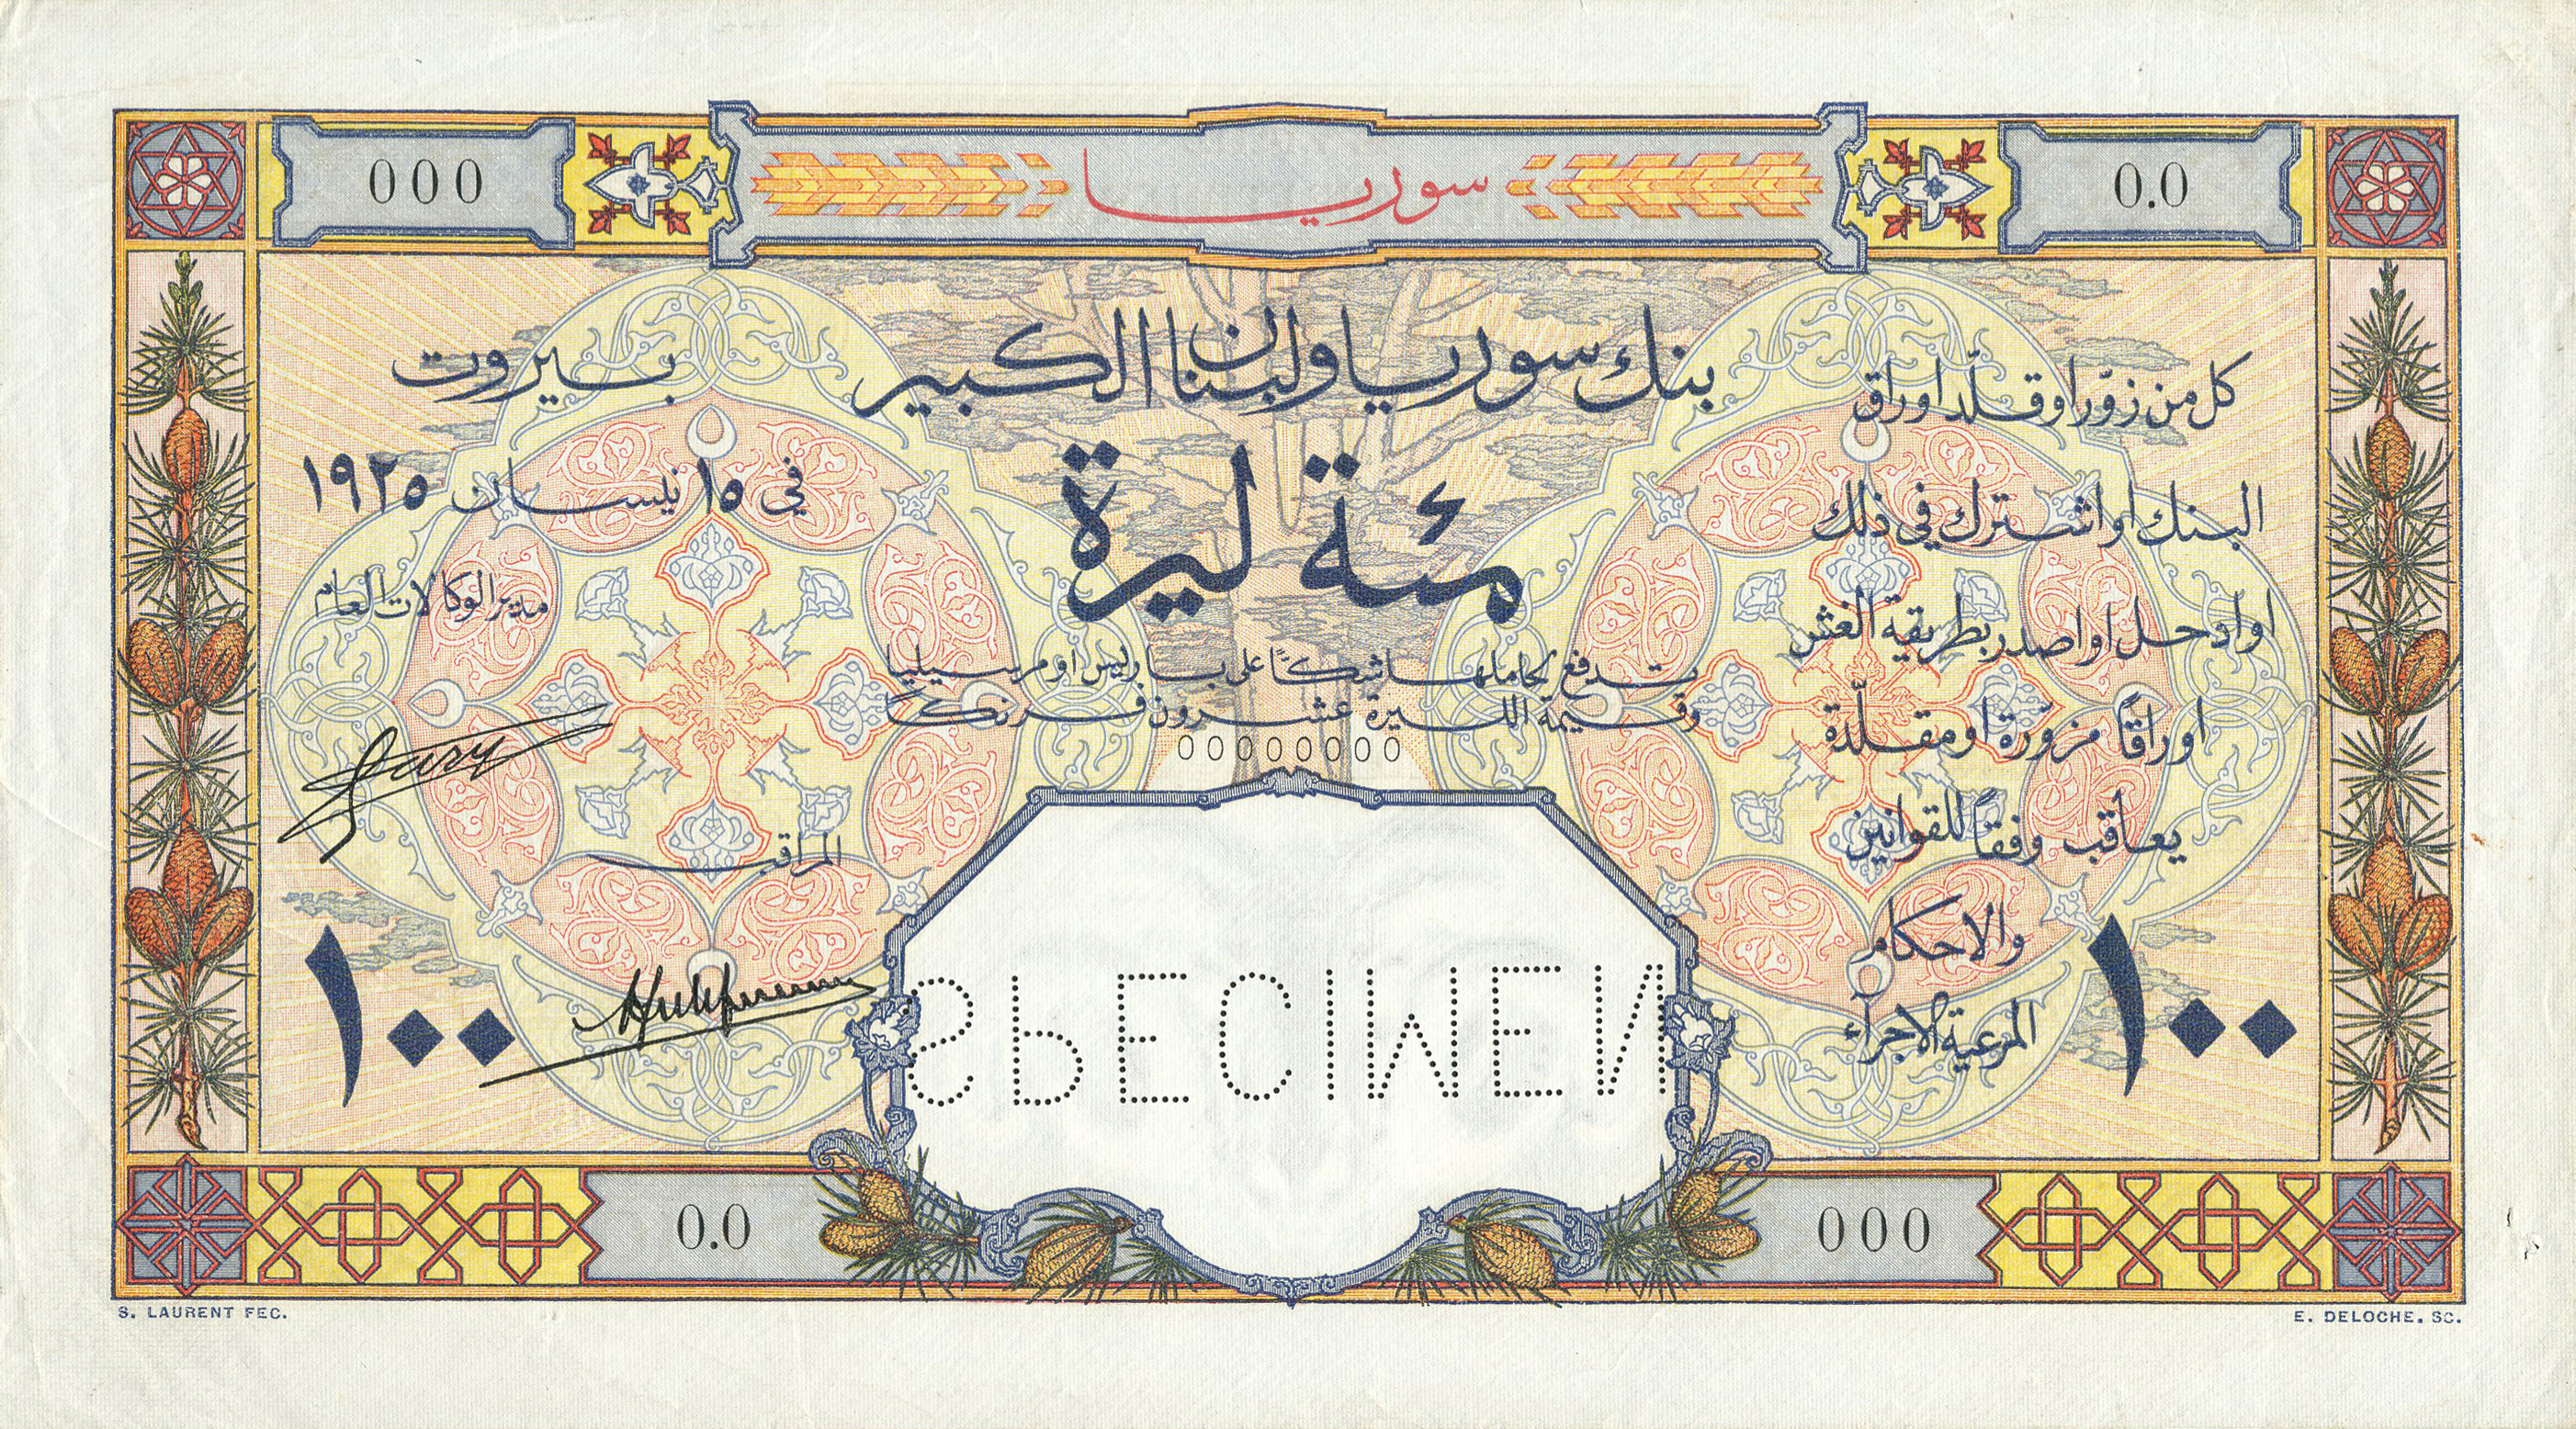 000
سوريا
0.0
بنك سوريا ولبنان الكبير
بيروت
مئة ليرة
في ١٥ نيسان ١٩٢٥
تدفع لحاملها شكًا على باريس او مرسيليا
وقيمة الليرة عشرون فرنكًا
00000000
مدير الوكالات العام
المراقب
كل من زوّر او قلّد اوراق
البنك او اشترك في ذلك
او ادخل او اصدر بطريقة الغش
اوراقًا مزوّرة او مقلّدة
يعاقب وفقًا للقوانين
والاحكام
المرعية الاجراء
١٠٠
١٠٠
SPECIMEN
0.0
000
S. LAURENT FEC.
E. DELOCHE. SC.